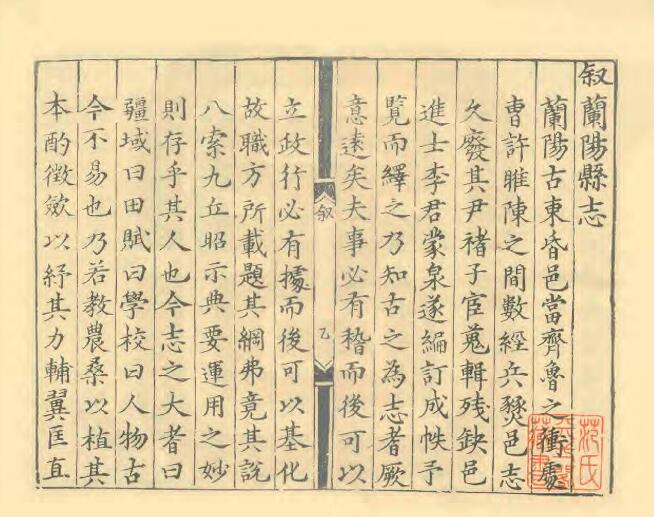 叙蘭陽縣志
蘭陽古東昏邑當齊魯之衝處
曹許睢陳之間數經兵燹邑志
久廢其尹褚子宦蒐輯残缺邑
進士李君蒙泉遂編訂成帙予
覧而繹之乃知古之為志者厥
意遠矣夫事必有稽而後可以
叙
乙
立政行必有據而後可以基化
故職方所載題其綱弗竟其說
八索九丘昭示典要運用之妙
則存乎其人也今志之大者曰
疆域曰田賦曰學校曰人物古
今不易也乃若教農桑以植其
本酌徵斂以紓其力輔翼匡直
范氏
天一閣
藏書